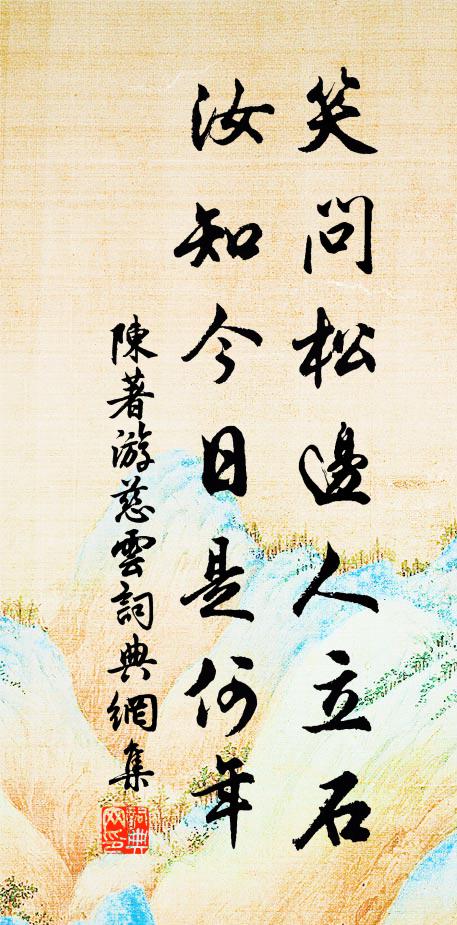 笑問松邊人立石
汝知今日是何年
陳著游慈雲詞典網集
詞典網印